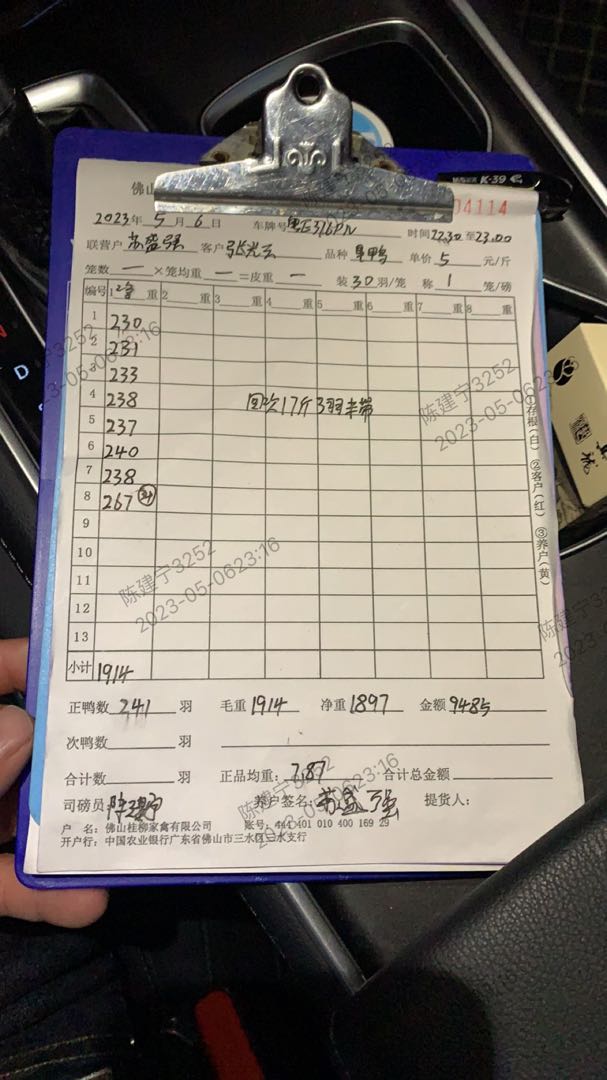 佛山
04114
2023年5月6日 车牌号粤E316PN 时间22.30至23.00
联营户 苏盛强 客户 张光云 品种 旱鸭 单价 5 元/斤
笼数 一 ×笼均重 一 =皮重 一 装 30 羽/笼 称 1 笼/磅
编号 1 2舍 重 2 重 3 重 4 重 5 重 6 重 7 重 8 重
1 230
2 231
3 233
4 238 回次17斤3羽半带
5 237
6 240
7 238
8 267 31
9
10
11
12
13
小计 1914
正鸭数 241 羽 毛重 1914 净重 1897 金额 9485
次鸭数 羽
合计数 羽 正品均重: 7.87 合计总金额
司磅员: 陈建宁 养户签名: 苏盛强 提货人:
户 名: 佛山桂柳家禽有限公司 账号: 444 401 010 400 169 29
开户行: 中国农业银行广东省佛山市三水区三水支行
①存根(白) ②客户(红) ③养户(黄)
K-39
陈建宁3252
2023-05-0623:16
陈建宁3252
2023-05-0623:16
陈建宁3252
2023-05-0623:16
陈建宁3252
2023-05-0623:16
陈建宁
2023-05-06
D